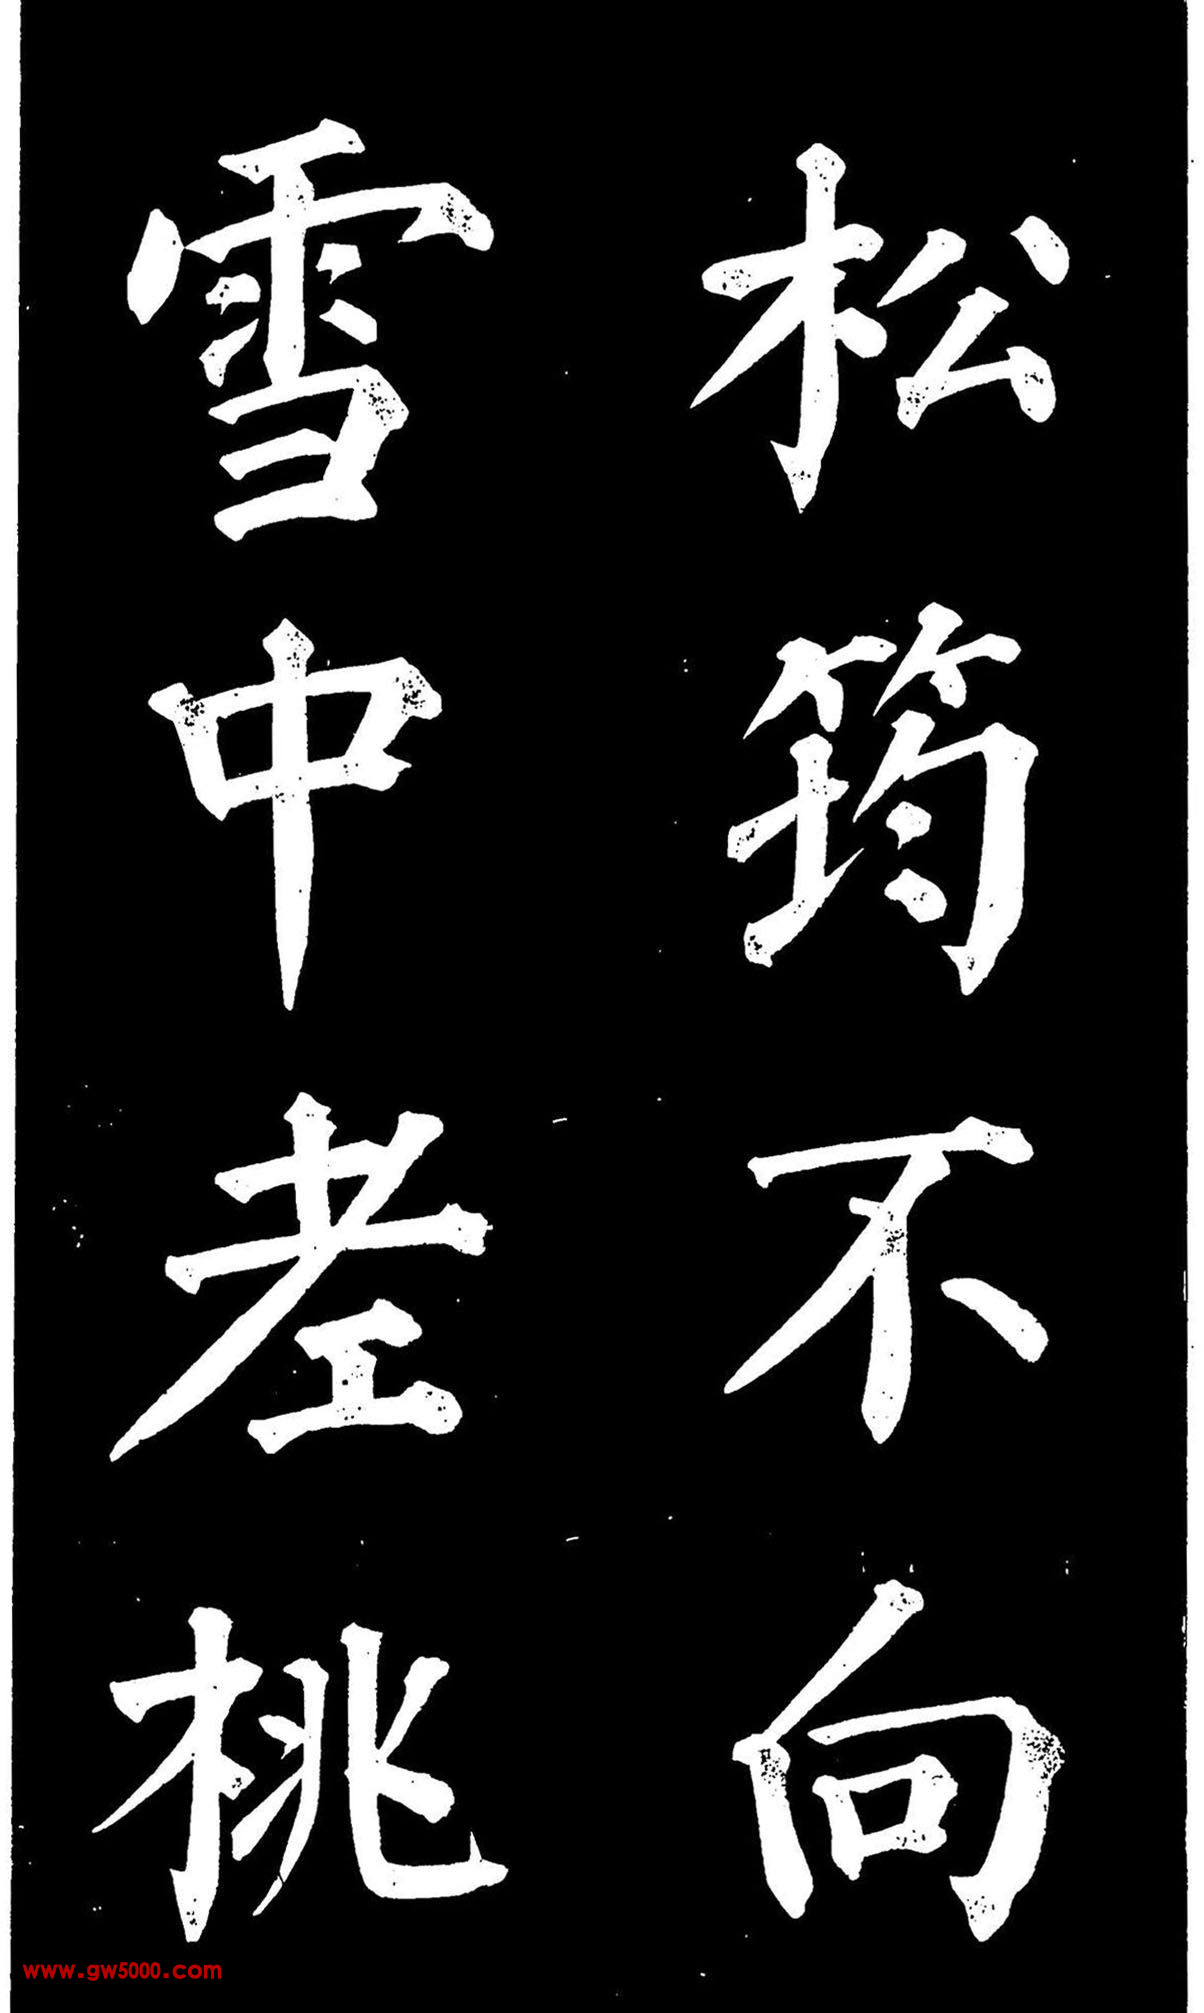 松筠不向
雪中老桃
www.gw5000.com